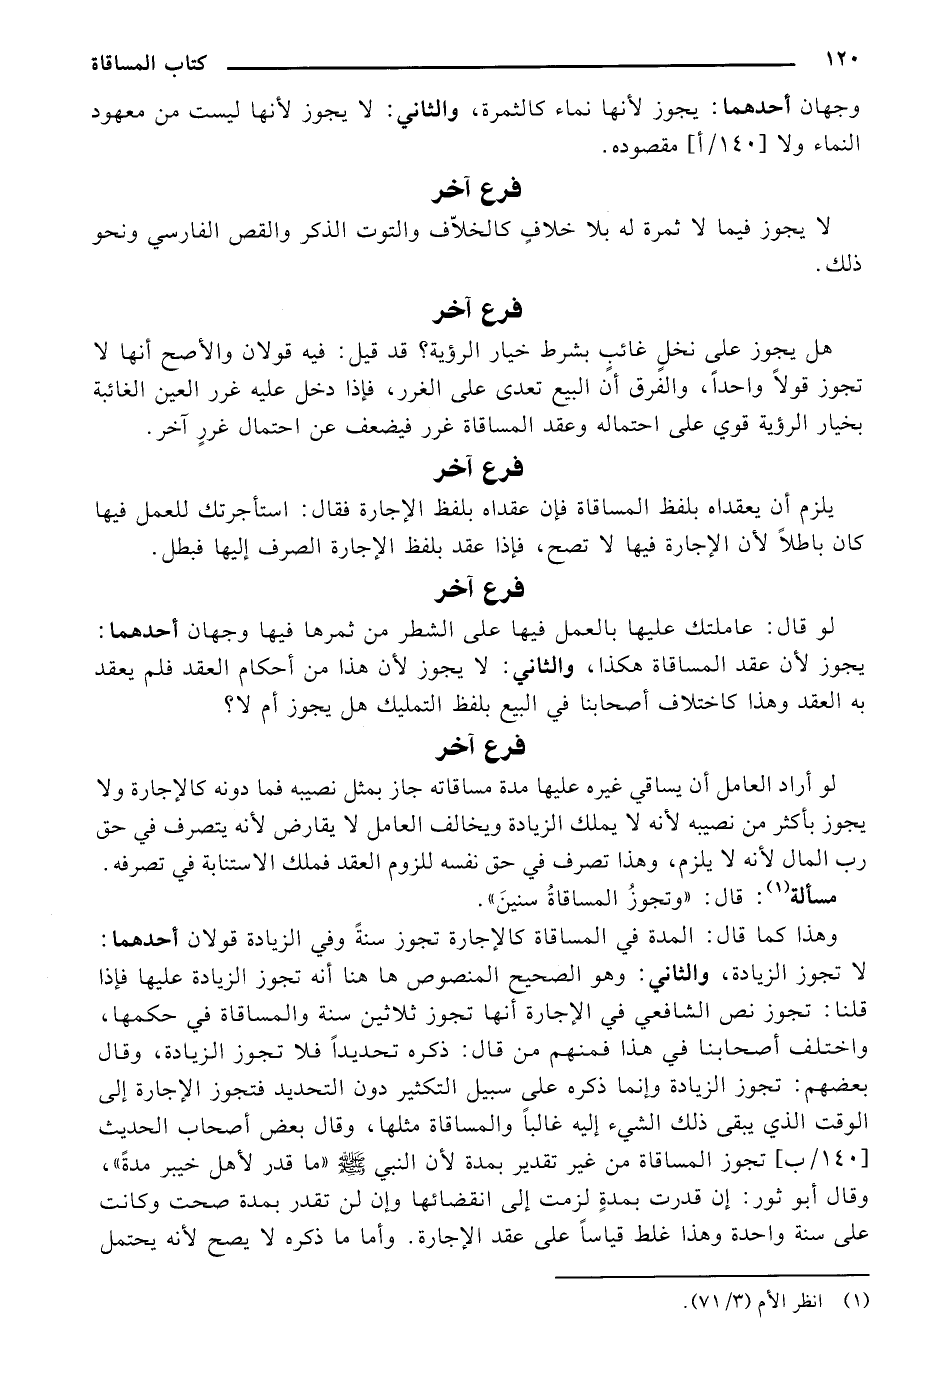 ١٢٠ كتاب المساقاة
وجهان أحدهما: يجوز لأنها نماء كالثمرة، والثاني: لا يجوز لأنها ليست من معهود
النماء ولا [١٤٠/أ] مقصوده.
فرع آخر
لا يجوز فيما لا ثمرة له بلا خلافٍ كالخلاّف والتوت الذكر والقص الفارسي ونحو
ذلك.
فرع آخر
هل يجوز على نخلٍ غائبٍ بشرط خيار الرؤية؟ قد قيل: فيه قولان والأصح أنها لا
تجوز قولاً واحداً، والفرق أن البيع تعدى على الغرر، فإذا دخل عليه غرر العين الغائبة
بخيار الرؤية قوي على احتماله وعقد المساقاة غرر فيضعف عن احتمال غررٍ آخر.
فرع آخر
يلزم أن يعقداه بلفظ المساقاة فإن عقداه بلفظ الإجارة فقال: استأجرتك للعمل فيها
كان باطلاً لأن الإجارة فيها لا تصح، فإذا عقد بلفظ الإجارة الصرف إليها فبطل.
فرع آخر
لو قال: عاملتك عليها بالعمل فيها على الشطر من ثمرها فيها وجهان أحدهما:
يجوز لأن عقد المساقاة هكذا، والثاني: لا يجوز لأن هذا من أحكام العقد فلم يعقد
به العقد وهذا كاختلاف أصحابنا في البيع بلفظ التمليك هل يجوز أم لا؟
فرع آخر
لو أراد العامل أن يساقي غيره عليها مدة مساقاته جاز بمثل نصيبه فما دونه كالإجارة ولا
يجوز بأكثر من نصيبه لأنه لا يملك الزيادة ويخالف العامل لا يقارض لأنه يتصرف في حق
رب المال لأنه لا يلزم، وهذا تصرف في حق نفسه للزوم العقد فملك الاستنابة في تصرفه.
مسألة(١): قال: «وتجوزُ المساقاةُ سنينَ».
وهذا كما قال: المدة في المساقاة كالإجارة تجوز سنةً وفي الزيادة قولان أحدهما:
لا تجوز الزيادة، والثاني: وهو الصحيح المنصوص ها هنا أنه تجوز الزيادة عليها فإذا
قلنا: تجوز نص الشافعي في الإجارة أنها تجوز ثلاثين سنة والمساقاة في حكمها،
واختلف أصحابنا في هذا فمنهم من قال: ذكره تحديداً فلا تجوز الزيادة، وقال
بعضهم: تجوز الزيادة وإنما ذكره على سبيل التكثير دون التحديد فتجوز الإجارة إلى
الوقت الذي يبقى ذلك الشيء إليه غالباً والمساقاة مثلها، وقال بعض أصحاب الحديث
[١٤٠/ب] تجوز المساقاة من غير تقدير بمدة لأن النبي ﷺ «ما قدر لأهل خيبر مدةً»،
وقال أبو ثور: إن قدرت بمدةٍ لزمت إلى انقضائها وإن لن تقدر بمدة صحت وكانت
على سنة واحدة وهذا غلط قياساً على عقد الإجارة. وأما ما ذكره لا يصح لأنه يحتمل
(١) انظر الأم (٧١/٣).